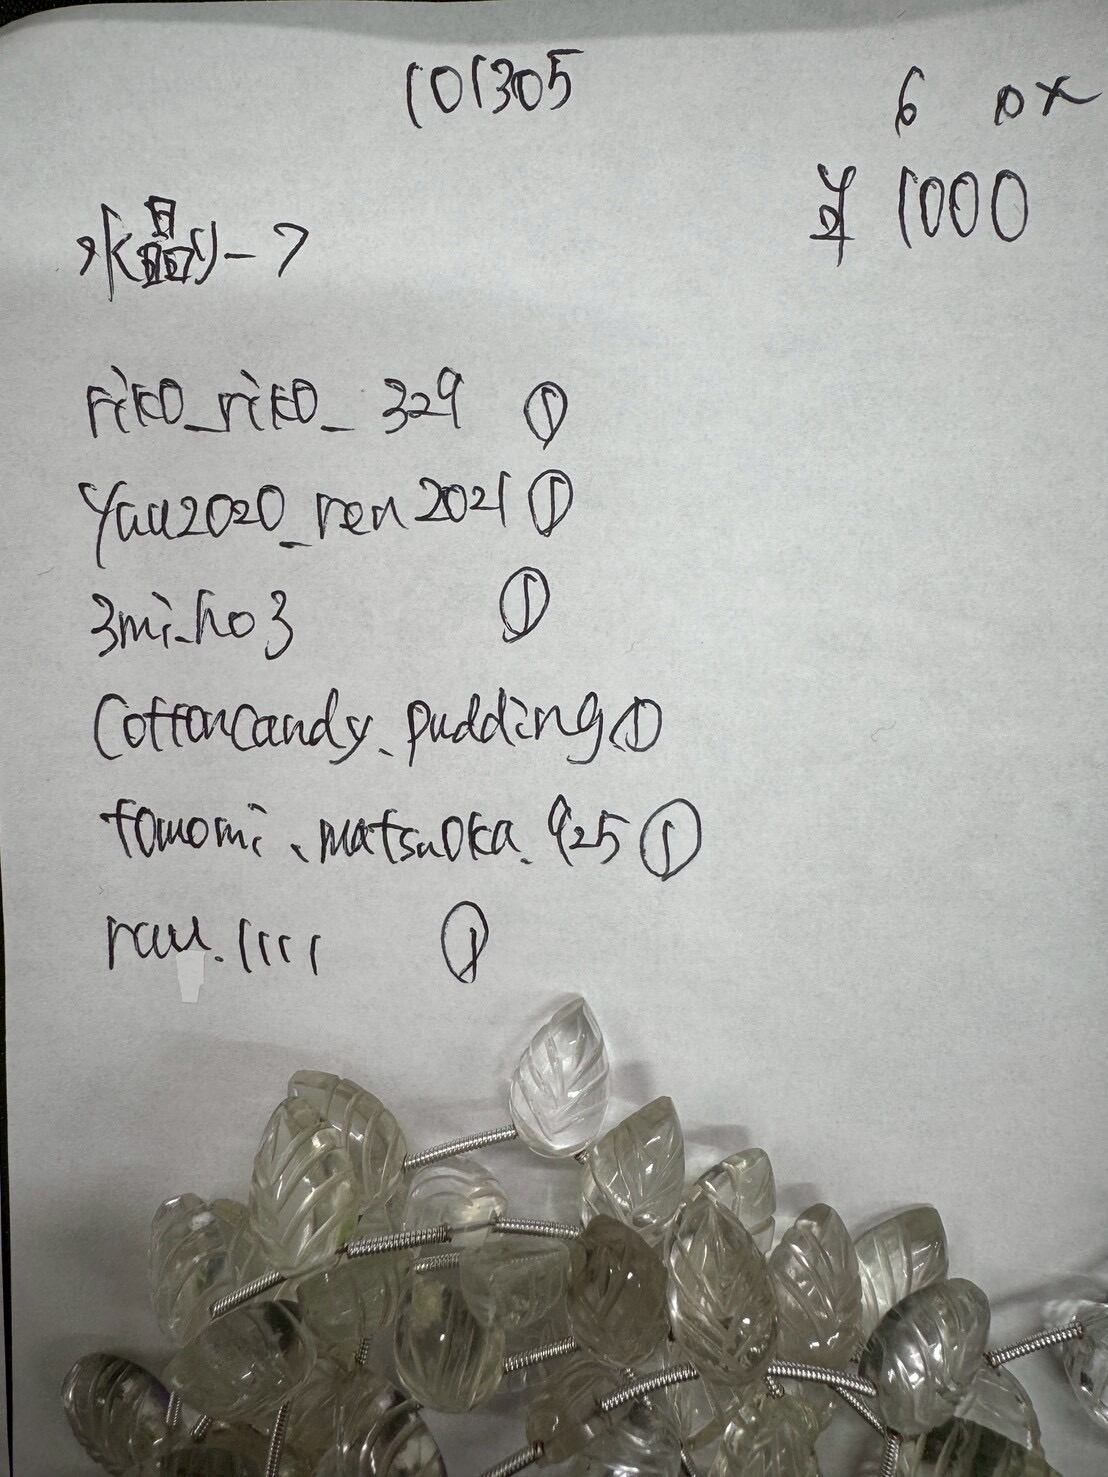 101305
6 px
¥ 1000
水晶リーフ
riko_riko_329 ①
yuu2020_ren2021 ①
3mi.ho3 ①
cottoncandy.pudding ①
tomomi.matsuoka.925 ①
rau.1111 ①